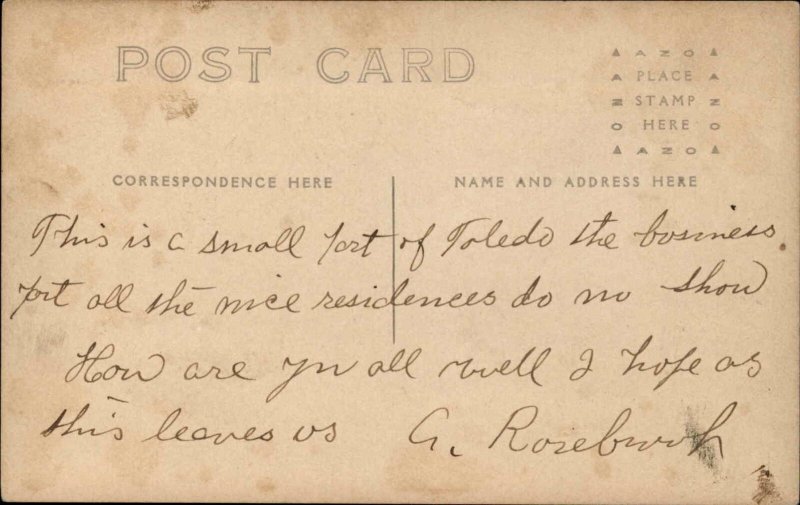 POST CARD
AZO
PLACE
STAMP
HERE
AZO
CORRESPONDENCE HERE
NAME AND ADDRESS HERE
This is a small port of Toledo the business
port all the nice residences do no show
How are you all well I hope as
this leaves us G. Rosebwoh